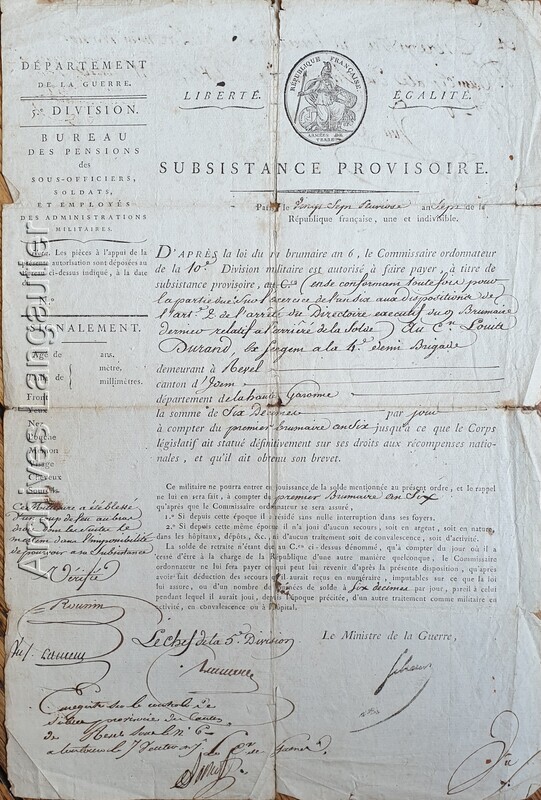 DÉPARTEMENT
DE LA GUERRE.
5e. DIVISION.
BUREAU
DES PENSIONS
des
SOUS-OFFICIERS,
SOLDATS,
ET EMPLOYÉS
DES ADMINISTRATIONS
MILITAIRES.
Les pièces à l'appui de la
autorisation sont déposées au
ci-dessus indiqué, à la date
SIGNALEMENT.
Age de ans.
mètre.
de millimètres.
Front
Yeux
Nez
Bouche
Menton
Visage
Cheveux
Ce Militaire a été blessé
d'un coup de feu au bras
dans l'impossibilité
de pourvoir à sa Subsistance
Vérifié
Vu
RÉPUBLIQUE FRANÇAISE.
ARMÉES DE TERRE
LIBERTÉ. ÉGALITÉ.
SUBSISTANCE PROVISOIRE.
Paris le Vingt Sept Pluviose an Sept de la
République française, une et indivisible.
D'APRÈS la loi du 11 brumaire an 6, le Commissaire ordonnateur
de la 10e. Division militaire est autorisé à faire payer, à titre de
subsistance provisoire, au Cen. (en se conformant toutefois pour
la partie due sur l'exercice de l'an six aux dispositions de
l'art. 2 de l'arrêté du Directoire executif du 9 Brumaire
dernier relatif à l'arriéré de la Solde) au Cen. Louis
Durand, ex Sergent a la 4e. Demi Brigade
demeurant à Revel
canton d'Idem
département de la haute Garonne
la somme de Six Décimes par jour
à compter du premier Brumaire an Six jusqu'à ce que le Corps
législatif ait statué définitivement sur ses droits aux récompenses natio-
nales, et qu'il ait obtenu son brevet.
Ce militaire ne pourra entrer en jouissance de la solde mentionnée au présent ordre, et le rappel
ne lui en sera fait, à compter du premier Brumaire an Six
qu'après que le Commissaire ordonnateur se sera assuré,
1.° Si depuis cette époque il a résidé sans nulle interruption dans ses foyers.
2.° Si depuis cette même époque il n'a joui d'aucun secours, soit en argent, soit en nature,
dans les hôpitaux, dépôts, &c. et d'aucun traitement soit de convalescence, soit d'activité.
La solde de retraite n'étant due au Cen. ci-dessus dénommé, qu'à compter du jour où il a
cessé d'être à la charge de la République d'une autre manière quelconque, le Commissaire
ordonnateur ne lui fera payer ce qui peut lui revenir d'après la présente disposition, qu'après
avoir fait déduction des secours qu'il aurait reçus en numéraire, imputables sur ce que la loi
lui assure, ou d'un nombre de journées de solde à Six décimes par jour, pareil à celui
pendant lequel il aurait joui, depuis l'époque précitée, d'un autre traitement comme militaire en
activité, en convalescence ou à l'hôpital.
Le Chef de la 5e. Division
Le Ministre de la Guerre,
Vu
Archives Langautier